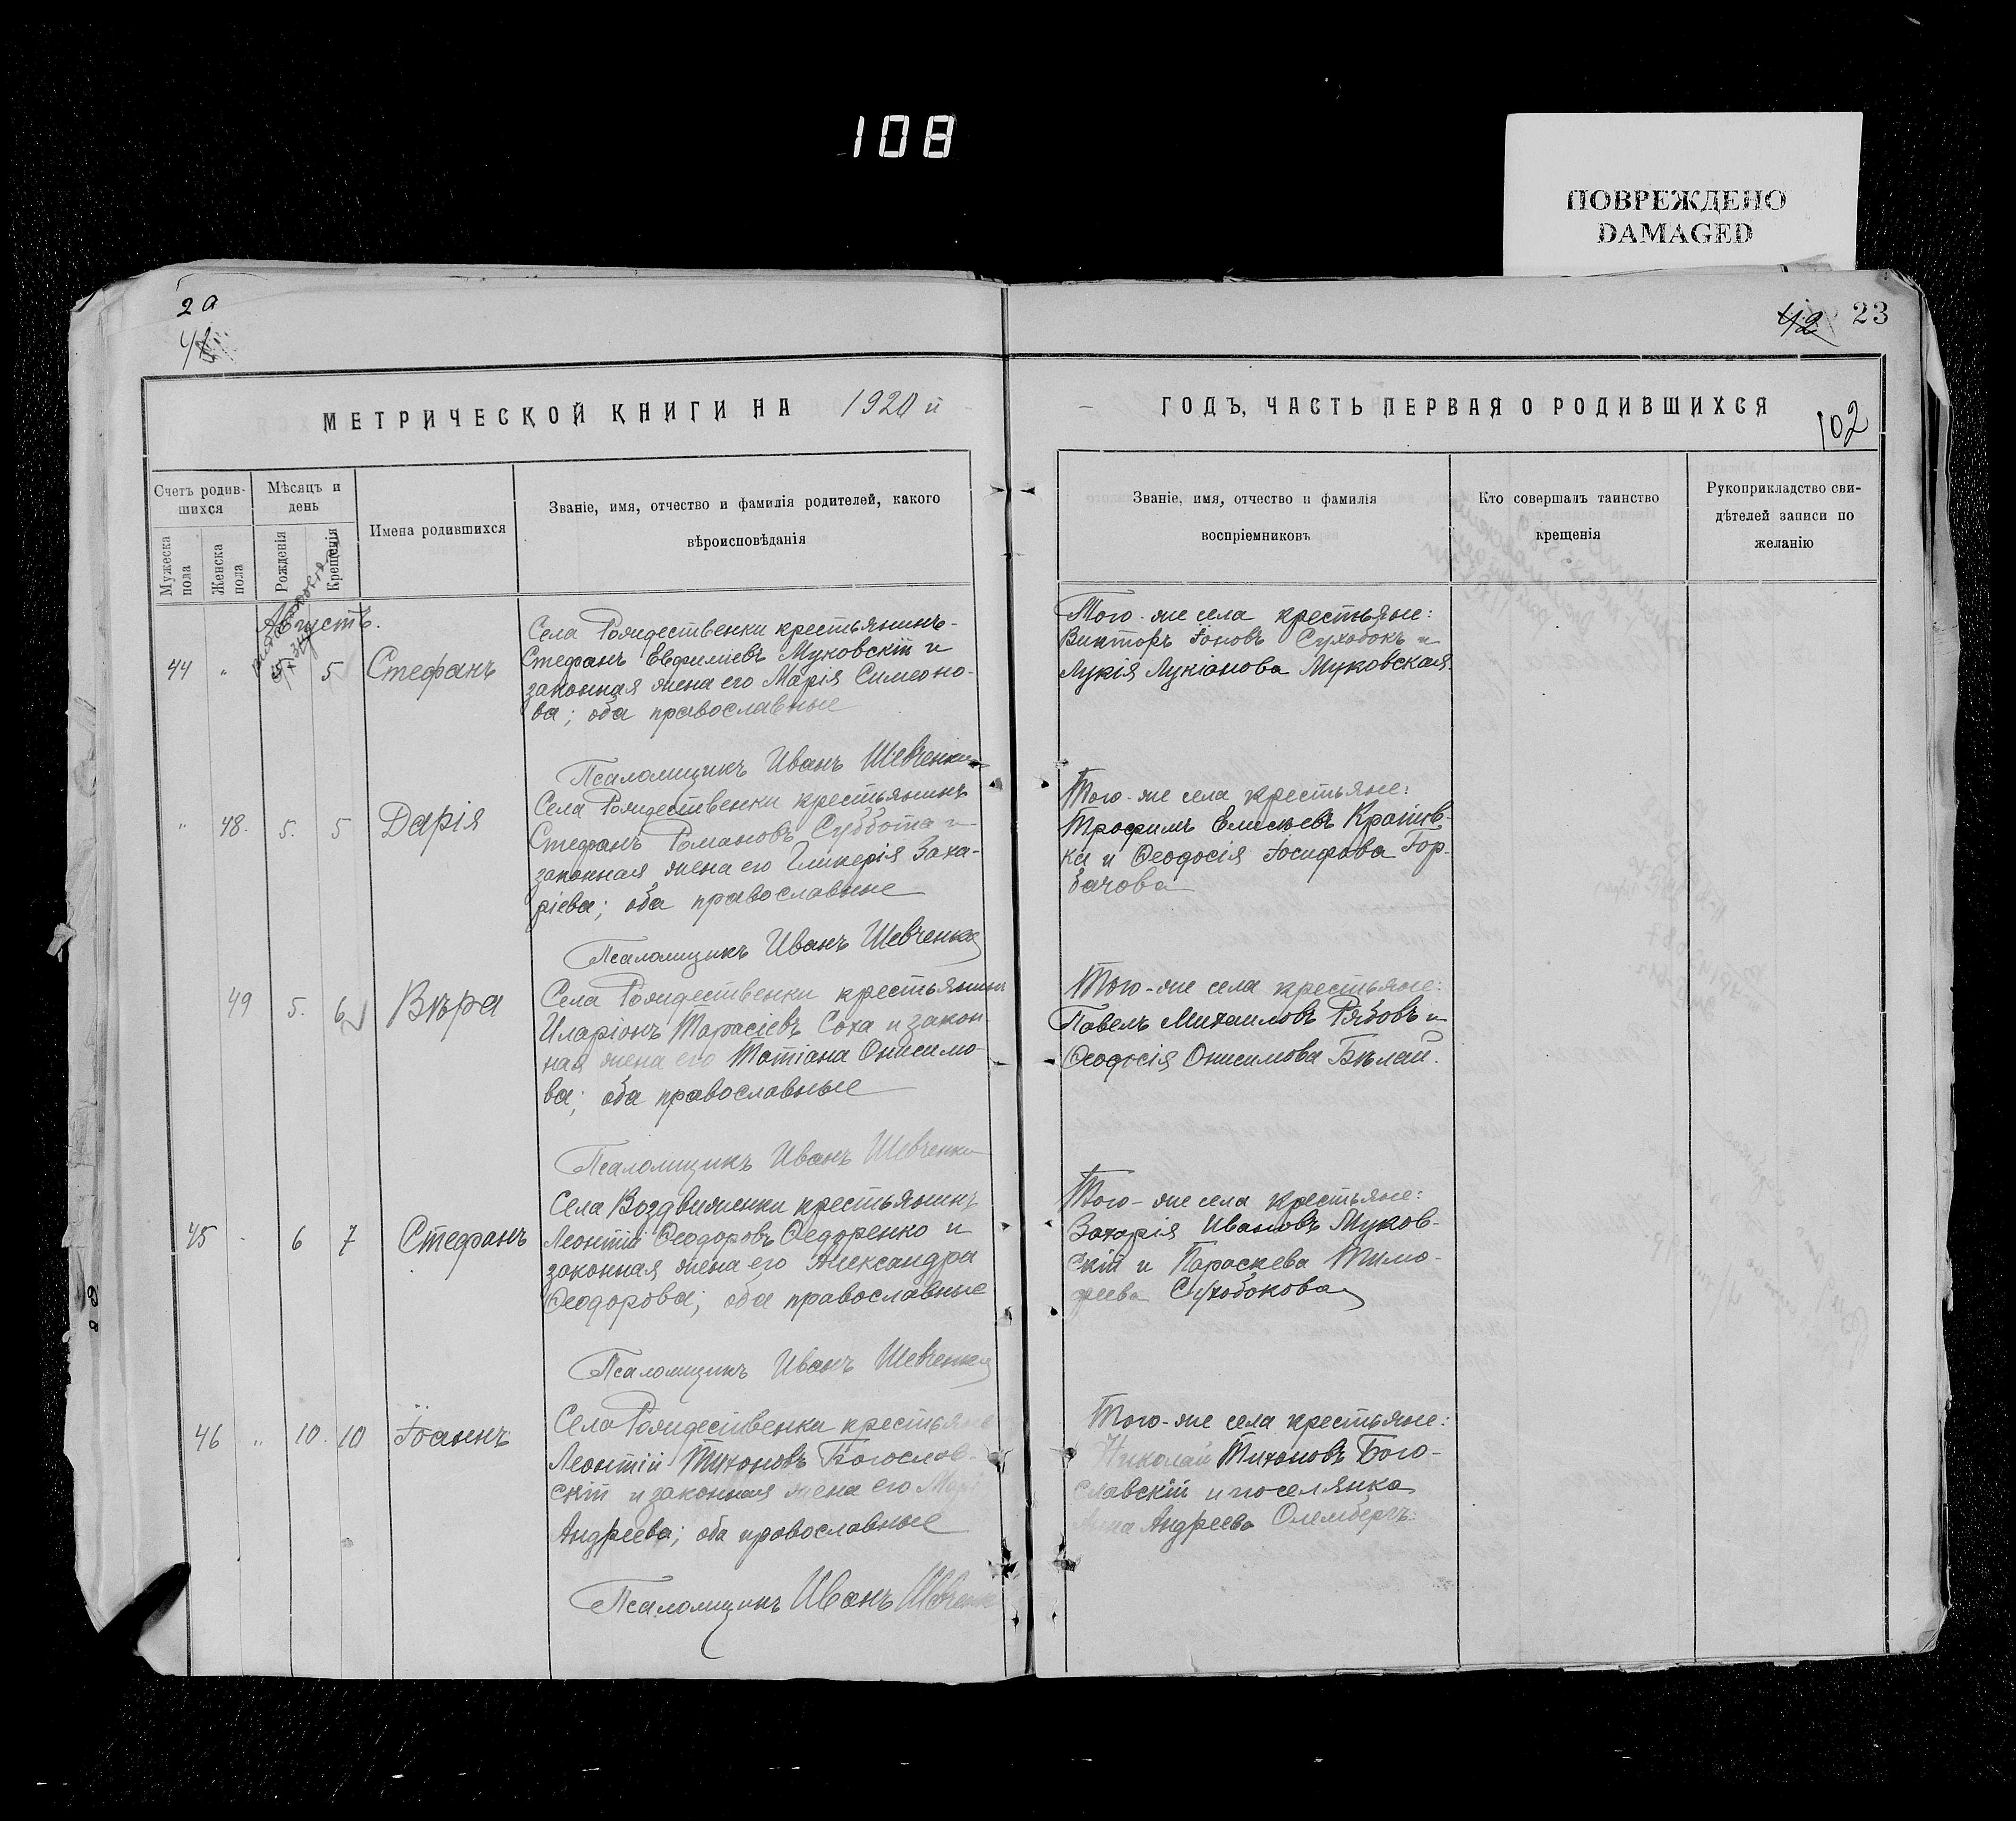 108
ПОВРЕЖДЕНО
DAMAGED
2а
42 23
МЕТРИЧЕСКОЙ КНИГИ НА 1920 й
ГОДЪ, ЧАСТЬ ПЕРВАЯ О РОДИВШИХСЯ
102
Счетъ родив-
шихся
Мужеска
пола
Женска
пола
Мѣсяцъ и
день
Рожденія
Крещенія
Имена родившихся
Званіе, имя, отчество и фамилія родителей, какого
вѣроисповѣданія
Званіе, имя, отчество и фамилія
воспріемниковъ
Кто совершалъ таинство
крещенія
Рукоприкладство сви-
дѣтелей записи по
желанію
Августъ.
44 " 5 Стефанъ
Села Рождественки крестьянинъ
Стефанъ Евфиміевъ Муковскій и
законная жена его Марія Симеоно-
ва; оба православные
Псаломщикъ Иванъ Шевченко
Того-же села крестьяне:
Викторъ Іоновъ Сухобокъ и
Лукія Лукіанова Муковская
" 48. 5. 5 Дарія
Села Рождественки крестьянинъ
Стефанъ Романовъ Суббота и
законная жена его Гликерія Заха-
ріева; оба православные
Псаломщикъ Иванъ Шевченко
Того-же села крестьяне:
Трофимъ Елисѣевъ
ки и Ѳеодосія Іосифова Гор-
бачова
49 5. 6 Вѣра
Села Рождественки крестьянинъ
Иларіонъ Тарасіевъ Соха и закон-
ная жена его Татіана Онисимо-
ва; оба православные
Псаломщикъ Иванъ Шевченко
Того-же села крестьяне:
Павелъ Михаиловъ Рябовъ и
Ѳеодосія Онисимова Бѣлай.
45 6 7 Стефанъ
Села Воздвиженки крестьянинъ
Леонтій Ѳеодоровъ Ѳедоренко и
законная жена его Александра
Ѳеодорова; оба православные
Псаломщикъ Иванъ Шевченко
Того-же села крестьяне:
Захарія Ивановъ Муков-
скій и Параскева Тимо-
феева Сухобокова
46 " 10. 10 Іоаннъ
Село Рождественки крестьяне
Леонтій Тихоновъ Богослов-
скій и законная жена его
Андреева; оба православные
Псаломщикъ Иванъ Шевченко
Того-же села крестьяне:
Николай Тихоновъ Бого-
славскій и поселянка
Анна Андреева Олембергъ